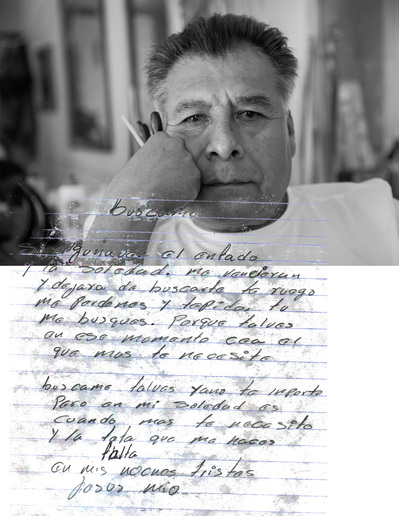 buscame
el enfado
y la soledad. me vencieran
y dejara da buscarte te ruego
me perdones y tu
me busques. Porque talves
en ese momento cea el
que mas te necesite
buscame talves yano te importe
Pero en mi soledad es
cuando mas te necesito
y la que me haces
falla
en mis noches tristes
Jesus mio